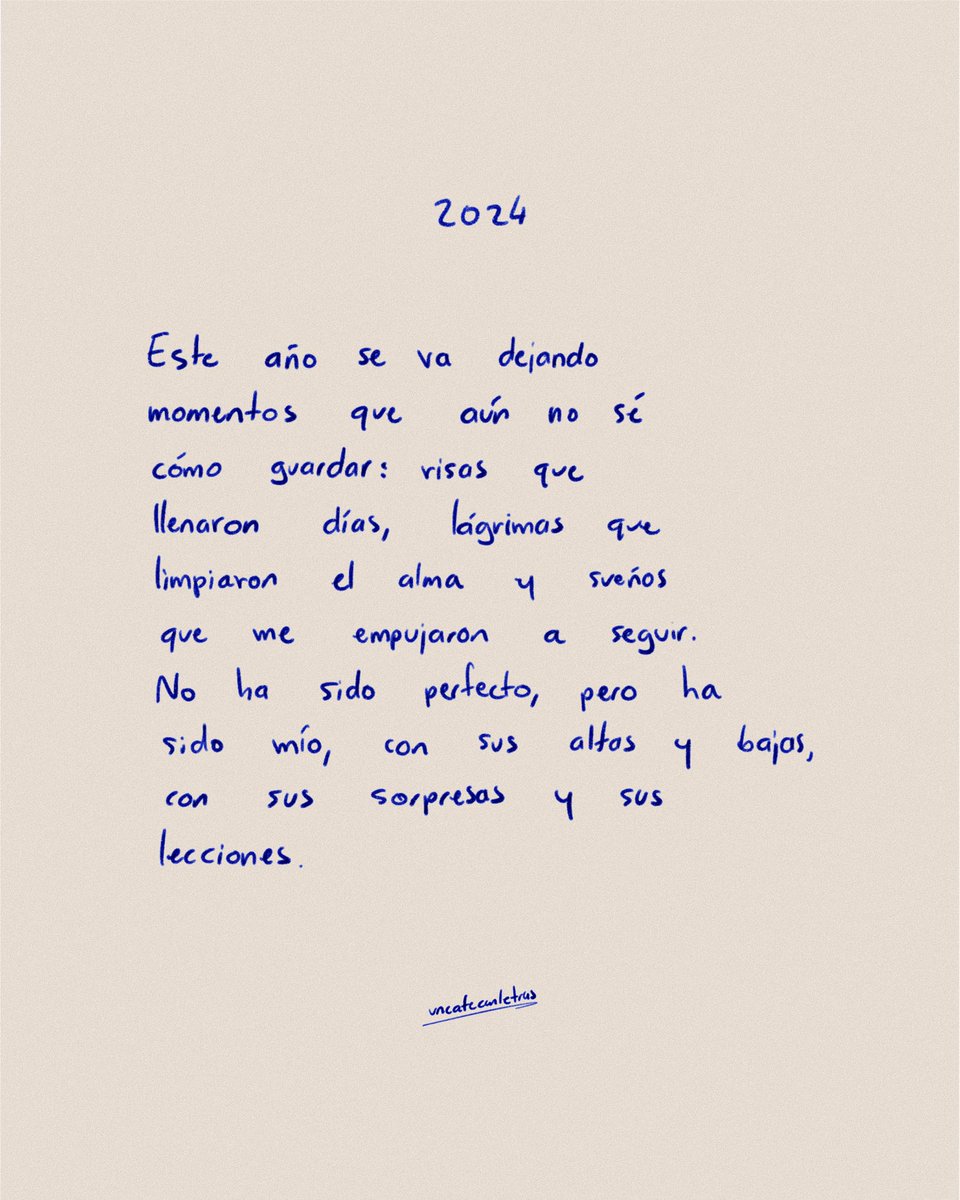 2024
Este año se va dejando
momentos que aún no sé
cómo guardar: risas que
llenaron días, lágrimas que
limpiaron el alma y sueños
que me empujaron a seguir.
No ha sido perfecto, pero ha
sido mío, con sus altos y bajos,
con sus sorpresas y sus
lecciones.
uncafeconletras